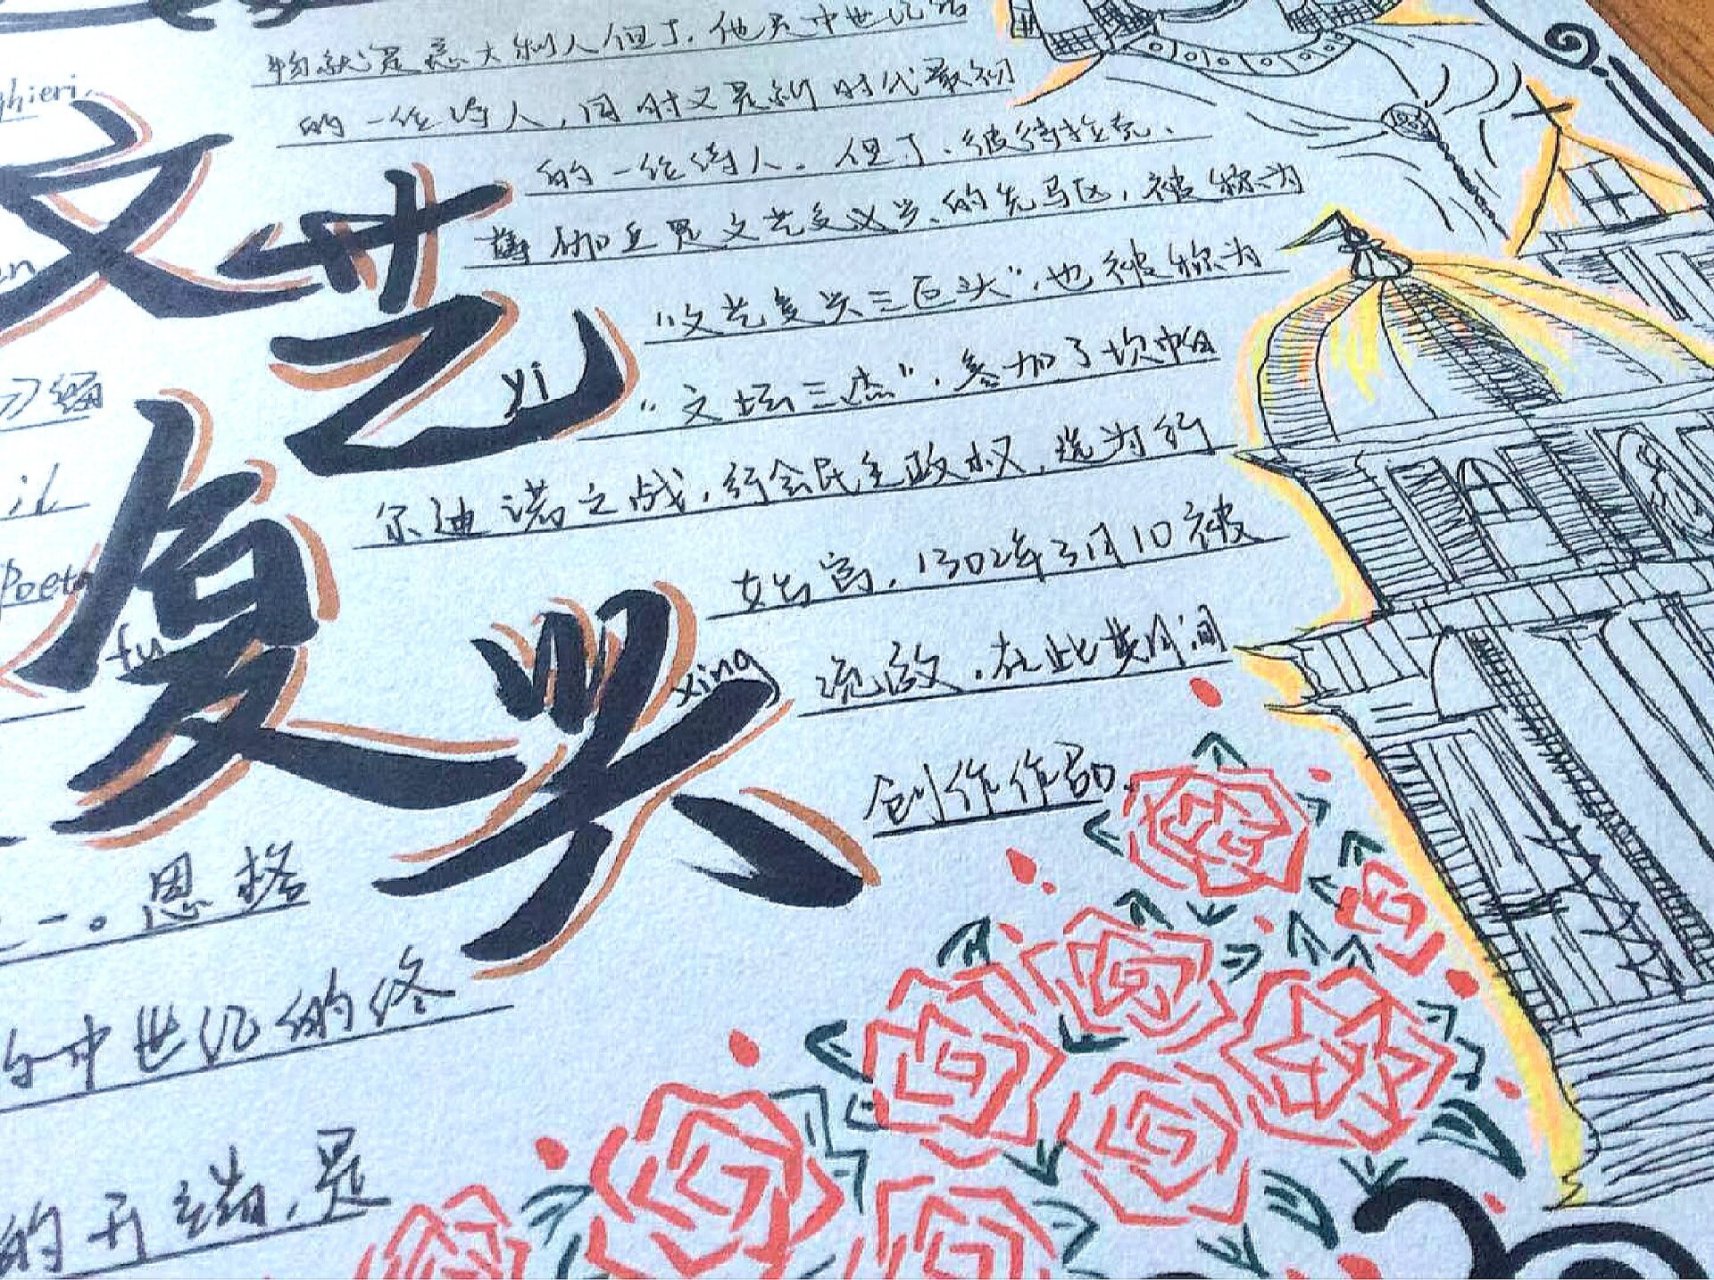 物就是意大利人但丁.他是中世纪的
ghieri,
的一位诗人,同时又是新时代最初
的一位诗人。但丁、彼特拉克、
薄伽丘是文艺复兴的先驱,被称为
"文艺复兴三巨头",也被称为
"文坛三杰",参加了坎帕
尔迪诺之战,行会民主政权,选为行
政官,1302年3月10被
流放,在此期间
创作作品.
文艺
yi
复
fu
兴
xing
en
il
Poeta
一。恩格
中世纪的终
的开端,是